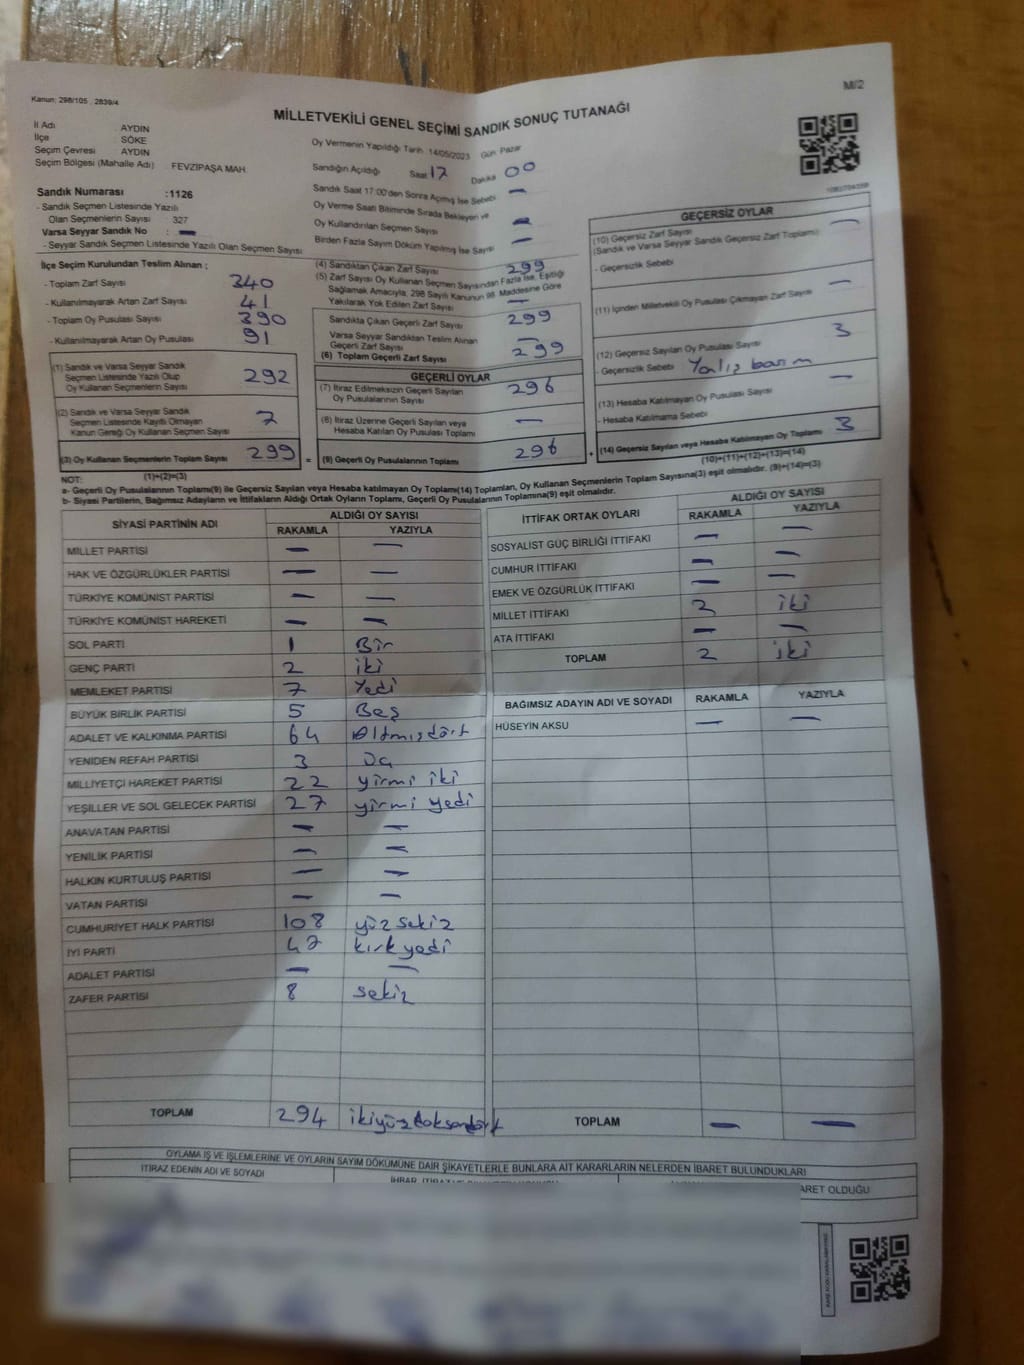 Kanun: 298/105 , 2839/4
M/2
MİLLETVEKİLİ GENEL SEÇİMİ SANDIK SONUÇ TUTANAĞI
İl Adı : AYDIN
İlçe : SÖKE
Seçim Çevresi : AYDIN
Seçim Bölgesi (Mahalle Adı) : FEVZİPAŞA MAH.
Sandık Numarası : 1126
- Sandık Seçmen Listesinde Yazılı
Olan Seçmenlerin Sayısı 327
Varsa Seyyar Sandık No : —
- Seyyar Sandık Seçmen Listesinde Yazılı Olan Seçmen Sayısı
Oy Vermenin Yapıldığı Tarih 14/05/2023 Gün Pazar
Sandığın Açıldığı Saat 17 Dakika 00
Sandık Saat 17:00'den Sonra Açılmış İse Sebebi —
Oy Verme Saati Bitiminde Sırada Bekleyen ve
Oy Kullandırılan Seçmen Sayısı —
Birden Fazla Sayım Döküm Yapılmış İse Sayısı —
İlçe Seçim Kurulundan Teslim Alınan ;
- Toplam Zarf Sayısı 340
- Kullanılmayarak Artan Zarf Sayısı 41
- Toplam Oy Pusulası Sayısı 390
- Kullanılmayarak Artan Oy Pusulası 91
(1) Sandık ve Varsa Seyyar Sandık
Seçmen Listesinde Yazılı Olup
Oy Kullanan Seçmenlerin Sayısı 292
(2) Sandık ve Varsa Seyyar Sandık
Seçmen Listesinde Kayıtlı Olmayan
Kanun Gereği Oy Kullanan Seçmen Sayısı 7
(3) Oy Kullanan Seçmenlerin Toplam Sayısı 299
(1)+(2)=(3)
(4) Sandıktan Çıkan Zarf Sayısı 299
(5) Zarf Sayısı Oy Kullanan Seçmen Sayısından Fazla İse, Eşitliği
Sağlamak Amacıyla, 298 Sayılı Kanunun 98. Maddesine Göre
Yakılarak Yok Edilen Zarf Sayısı —
Sandıkta Çıkan Geçerli Zarf Sayısı 299
Varsa Seyyar Sandıktan Teslim Alınan
Geçerli Zarf Sayısı —
(6) Toplam Geçerli Zarf Sayısı 299
GEÇERLİ OYLAR
(7) İtiraz Edilmeksizin Geçerli Sayılan
Oy Pusulalarının Sayısı 296
(8) İtiraz Üzerine Geçerli Sayılan veya
Hesaba Katılan Oy Pusulası Toplamı —
= (9) Geçerli Oy Pusulalarının Toplamı 296
GEÇERSİZ OYLAR
(10) Geçersiz Zarf Sayısı —
(Sandık ve Varsa Seyyar Sandık Geçersiz Zarf Toplamı)
- Geçersizlik Sebebi
(11) İçinden Milletvekili Oy Pusulası Çıkmayan Zarf Sayısı —
(12) Geçersiz Sayılan Oy Pusulası Sayısı 3
- Geçersizlik Sebebi Yanlış basım
(13) Hesaba Katılmayan Oy Pusulası Sayısı —
- Hesaba Katılmama Sebebi
+ (14) Geçersiz Sayılan veya Hesaba Katılmayan Oy Toplamı 3
(10)+(11)+(12)+(13)=(14)
NOT:
a- Geçerli Oy Pusulalarının Toplamı(9) ile Geçersiz Sayılan veya Hesaba katılmayan Oy Toplamı(14) Toplamları, Oy Kullanan Seçmenlerin Toplam Sayısına(3) eşit olmalıdır. (9)+(14)=(3)
b- Siyasi Partilerin, Bağımsız Adayların ve İttifakların Aldığı Ortak Oyların Toplamı, Geçerli Oy Pusulalarının Toplamına(9) eşit olmalıdır.
SİYASİ PARTİNİN ADI ALDIĞI OY SAYISI
RAKAMLA YAZIYLA
MİLLET PARTİSİ — —
HAK VE ÖZGÜRLÜKLER PARTİSİ — —
TÜRKİYE KOMÜNİST PARTİSİ — —
TÜRKİYE KOMÜNİST HAREKETİ — —
SOL PARTİ 1 Bir
GENÇ PARTİ 2 iki
MEMLEKET PARTİSİ 7 Yedi
BÜYÜK BİRLİK PARTİSİ 5 Beş
ADALET VE KALKINMA PARTİSİ 64 Altmışdört
YENİDEN REFAH PARTİSİ 3 Üç
MİLLİYETÇİ HAREKET PARTİSİ 22 yirmi iki
YEŞİLLER VE SOL GELECEK PARTİSİ 27 yirmi yedi
ANAVATAN PARTİSİ — —
YENİLİK PARTİSİ — —
HALKIN KURTULUŞ PARTİSİ — —
VATAN PARTİSİ — —
CUMHURİYET HALK PARTİSİ 108 yüz sekiz
İYİ PARTİ 47 kırk yedi
ADALET PARTİSİ — —
ZAFER PARTİSİ 8 sekiz
TOPLAM 294 ikiyüzdoksandört
İTTİFAK ORTAK OYLARI ALDIĞI OY SAYISI
RAKAMLA YAZIYLA
SOSYALİST GÜÇ BİRLİĞİ İTTİFAKI — —
CUMHUR İTTİFAKI — —
EMEK VE ÖZGÜRLÜK İTTİFAKI — —
MİLLET İTTİFAKI 2 iki
ATA İTTİFAKI — —
TOPLAM 2 iki
BAĞIMSIZ ADAYIN ADI VE SOYADI RAKAMLA YAZIYLA
HÜSEYİN AKSU — —
TOPLAM — —
OYLAMA İŞ VE İŞLEMLERİNE VE OYLARIN SAYIM DÖKÜMÜNE DAİR ŞİKAYETLERLE BUNLARA AİT KARARLARIN NELERDEN İBARET BULUNDUKLARI
İTİRAZ EDENİN ADI VE SOYADI